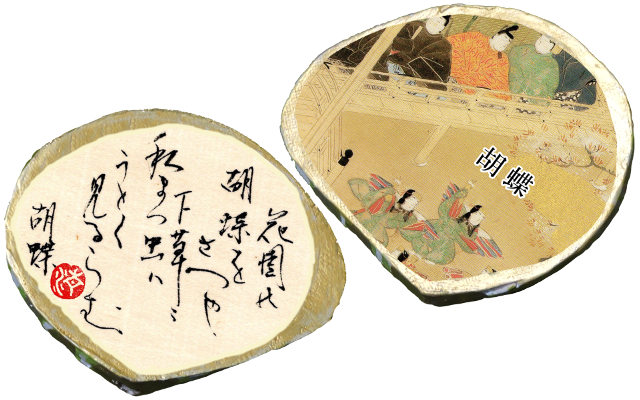 花園の
胡蝶を
さへや
下草ニ
秋まつ虫ハ
うとく
見るらむ
胡蝶
胡蝶